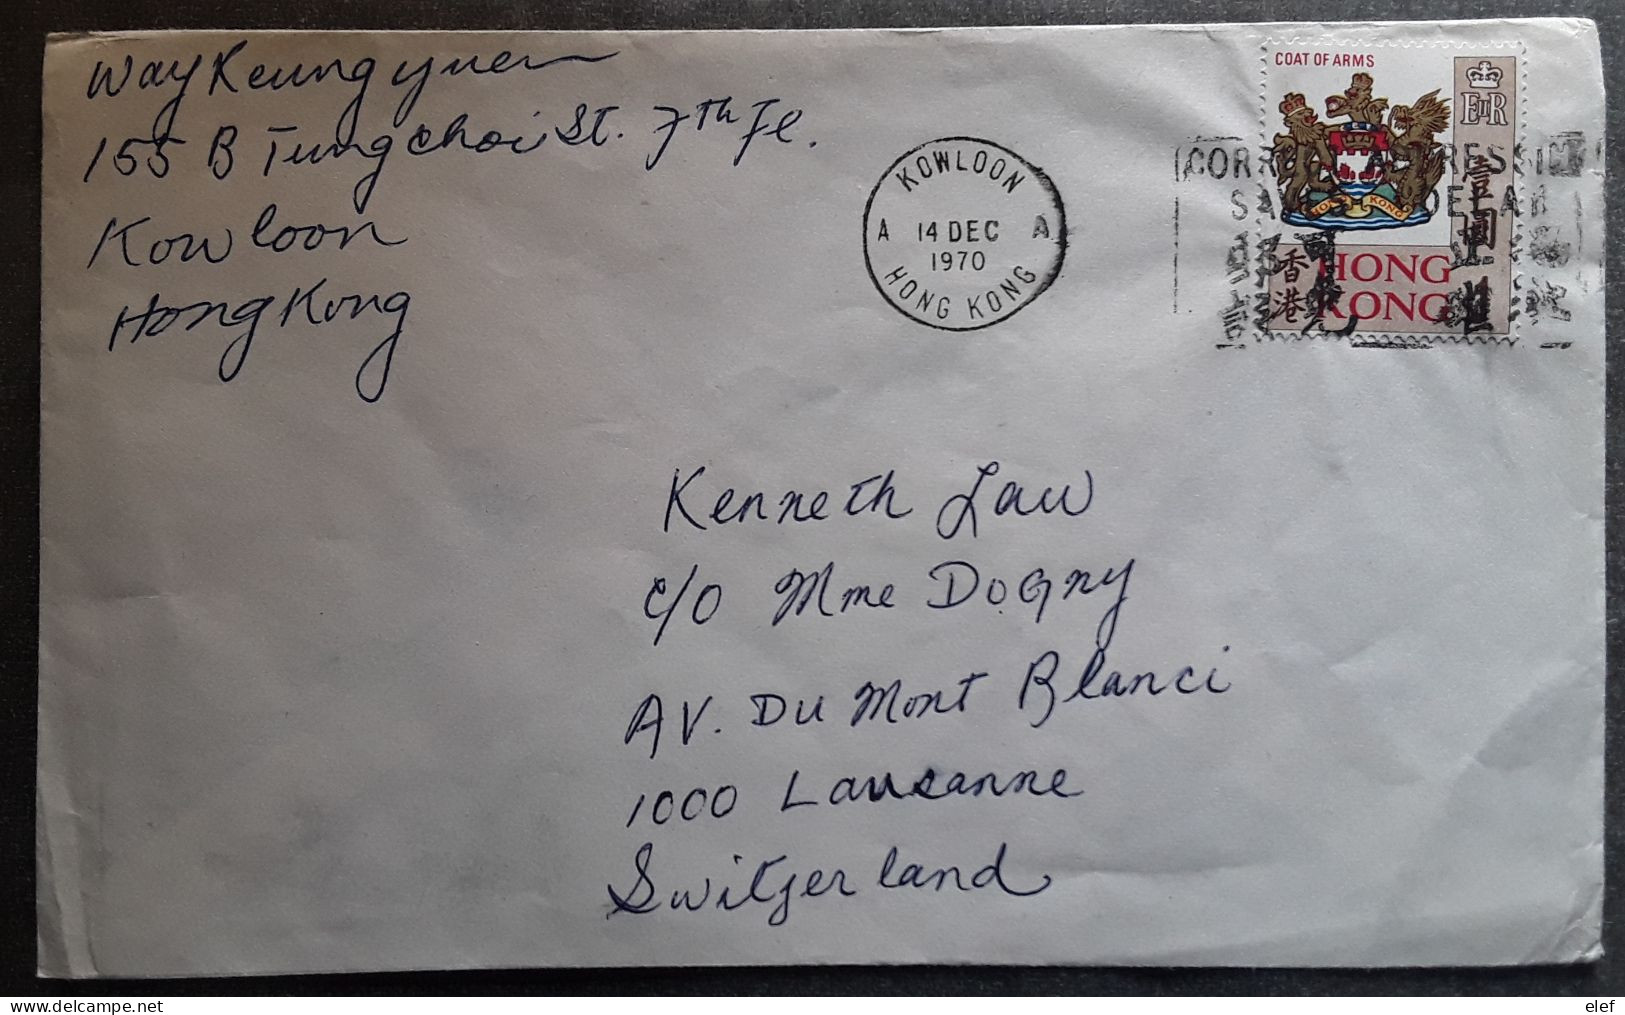 Way Keung yuen
155 B Tung choi St. 7th Fl.
Kowloon
Hong Kong
COAT OF ARMS
EIIR
HONG KONG
壹圓
香港
HONG
KONG
KOWLOON
A 14 DEC A
1970
HONG KONG
CORRECT ADDRESSING
Kenneth Law
c/o Mme Dogny
AV. Du Mont Blanci
1000 Lausanne
Switzerland
www.delcampe.net
elef